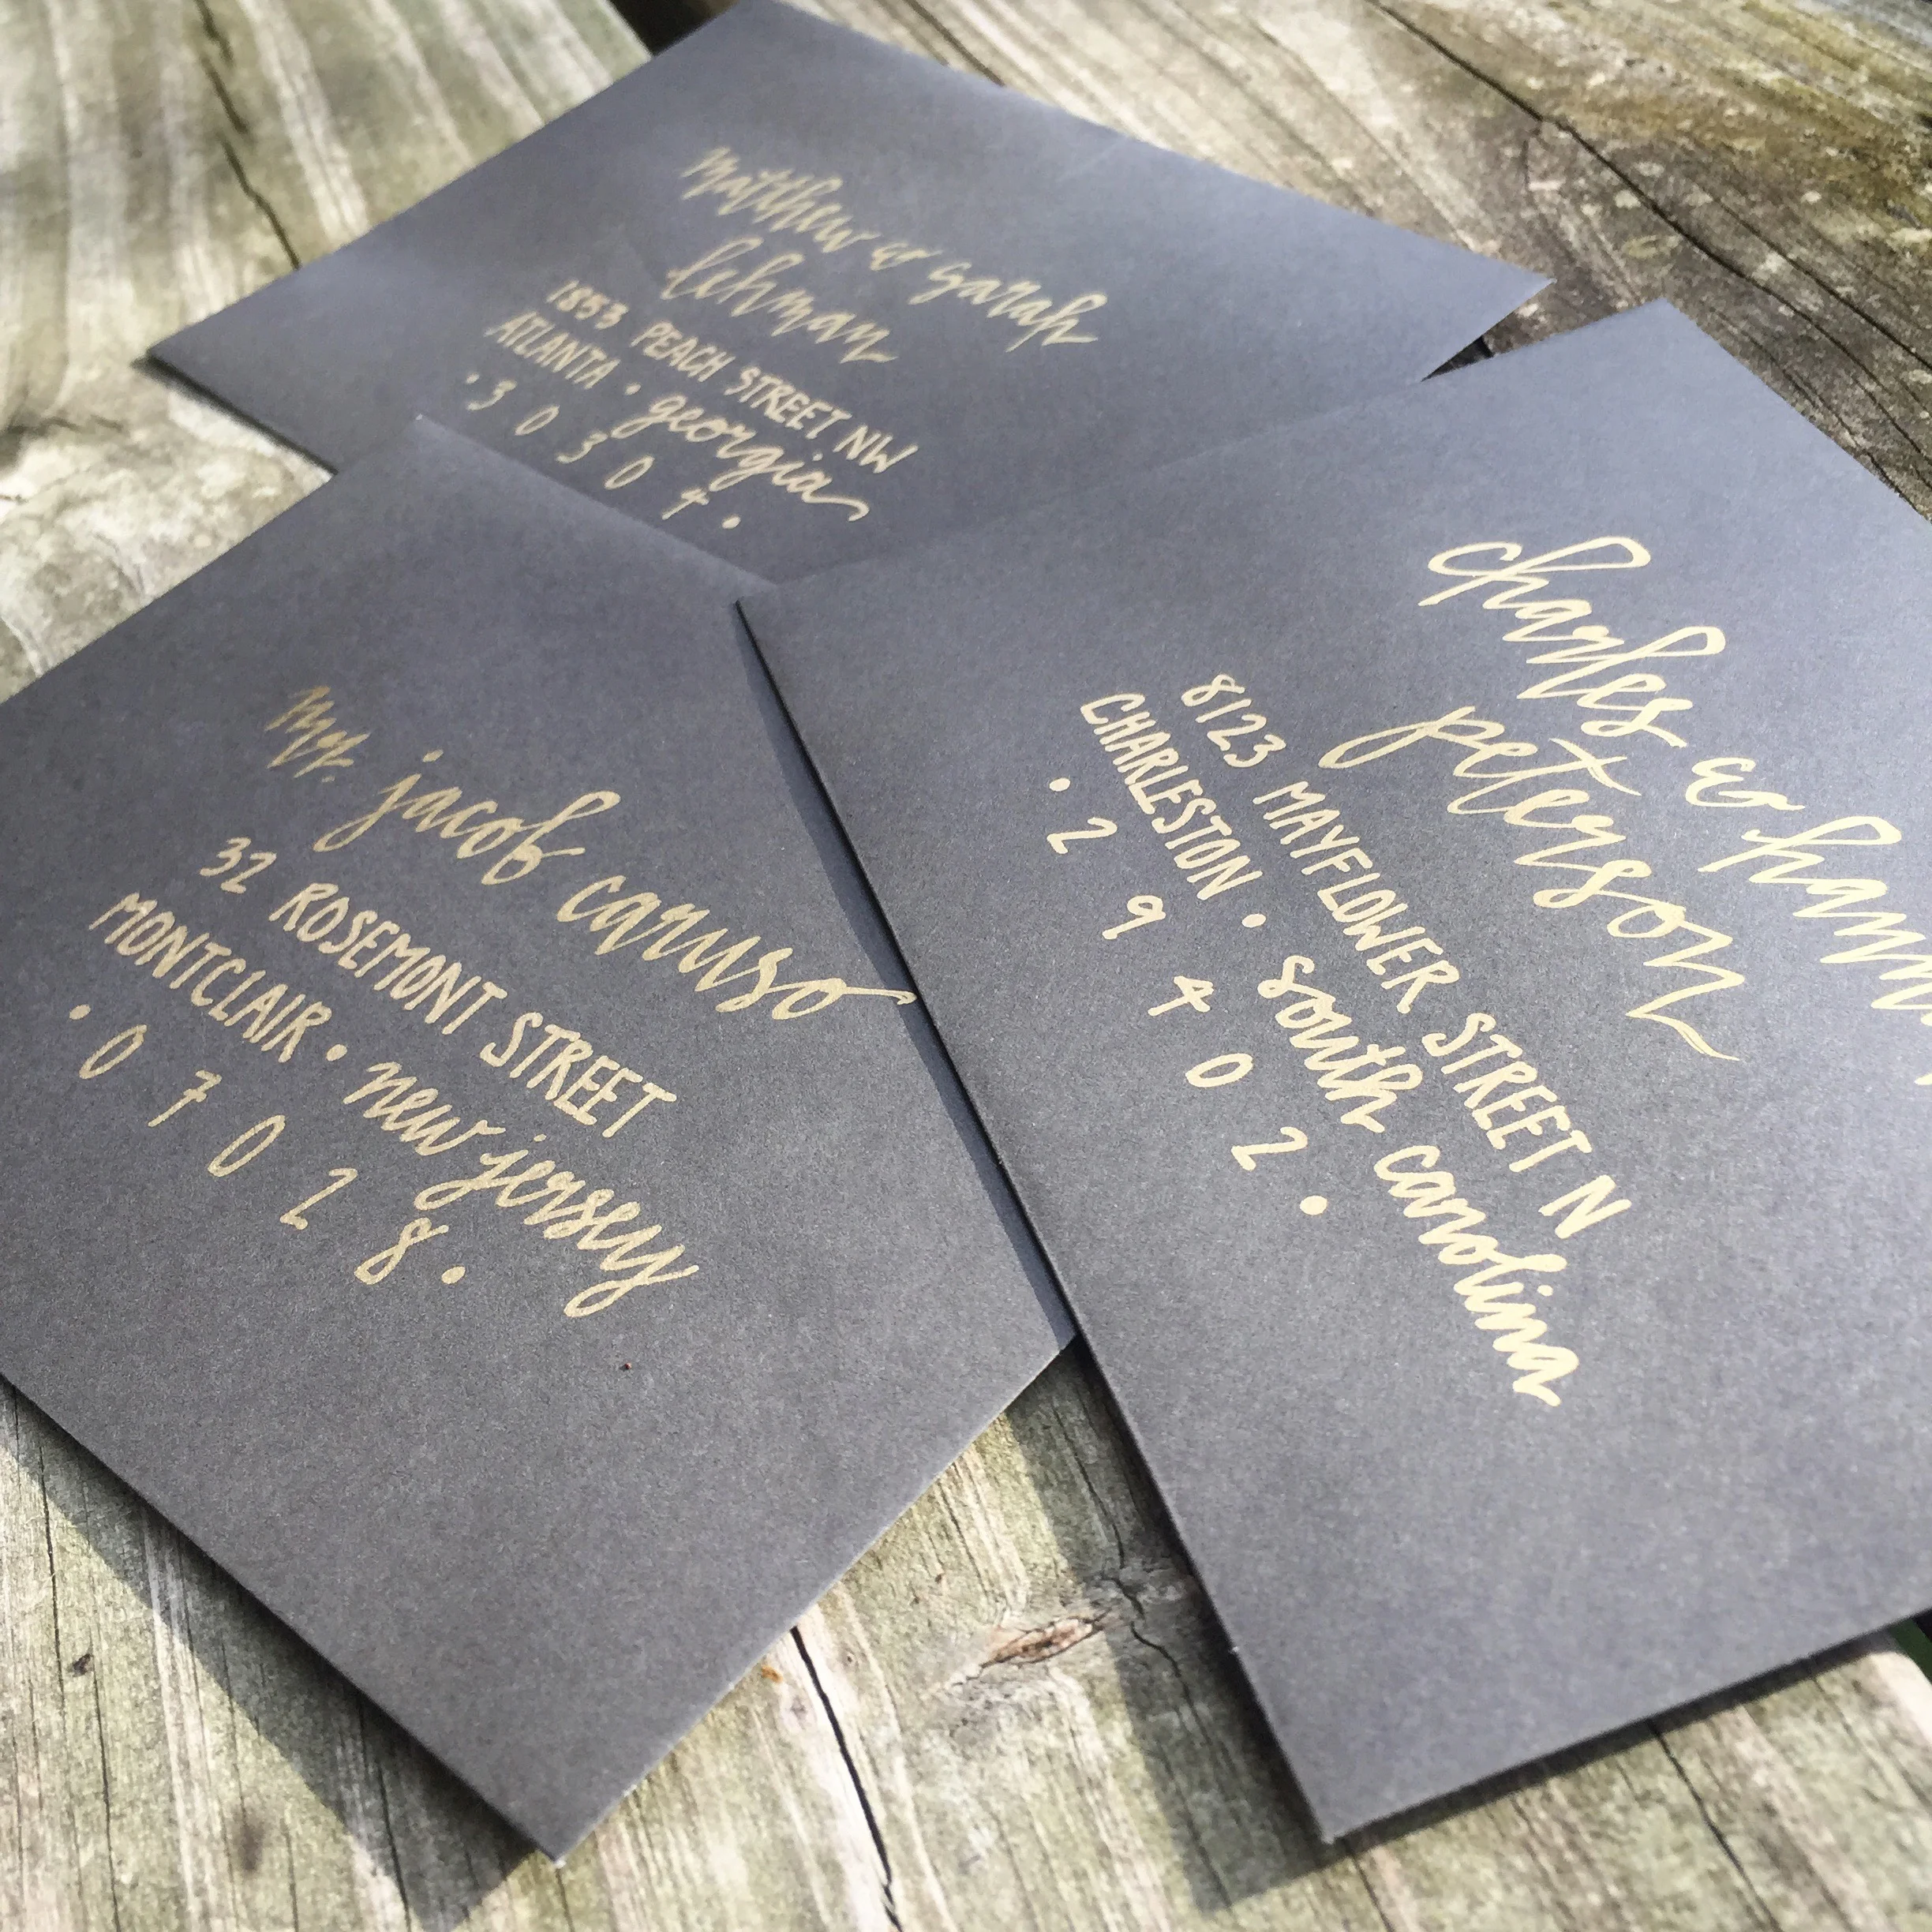 matthew & sarah
lehman
1853 PEACH STREET NW
ATLANTA • georgia
• 3 0 3 0 4 •
mr. jacob caruso
32 ROSEMONT STREET
MONTCLAIR • new jersey
• 0 7 0 2 8 •
charles &
peterson
8123 MAYFLOWER STREET N
CHARLESTON • south carolina
• 2 9 4 0 2 •